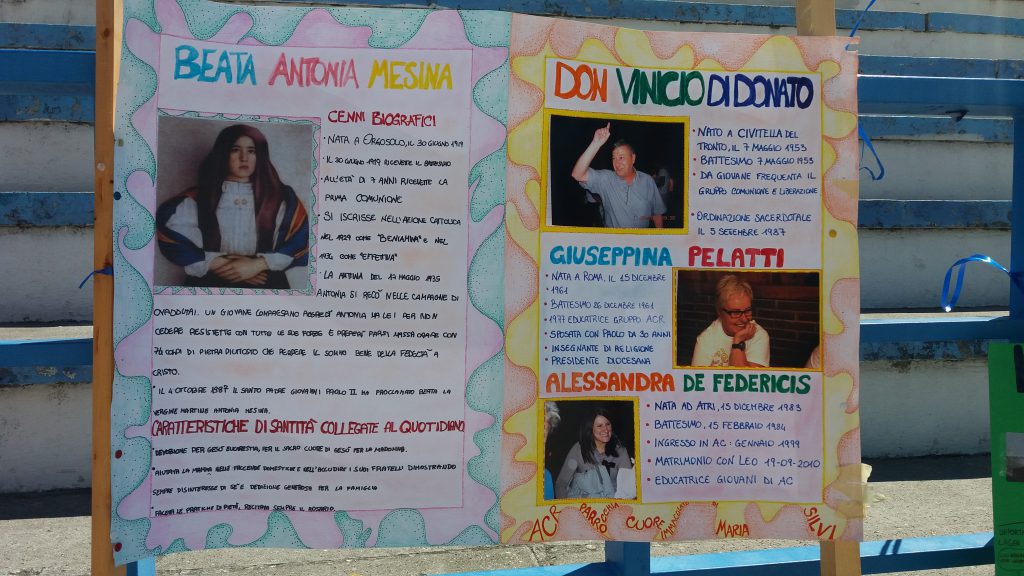 BEATA ANTONIA MESINA
CENNI BIOGRAFICI
• NATA A ORGOSOLO, IL 30 GIUGNO 1919
• IL 30 GIUGNO 1919 RICEVETTE IL BATTESIMO
• ALL'ETÀ DI 7 ANNI RICEVETTE LA
PRIMA COMUNIONE
• SI ISCRISSE NELL'AZIONE CATTOLICA
NEL 1929 COME "BENIAMINA" E NEL
1934 COME "EFFETTIVA"
• LA MATTINA DEL 17 MAGGIO 1935
ANTONIA SI RECÒ NELLE CAMPAGNE DI
UN GIOVANE COMPAESANO AGGREDÌ ANTONIA MA LEI PER NON
CEDERE RESISTETTE CON TUTTE LE SUE FORZE E
74 COLPI DI PIETRA IL SOMMO BENE DELLA FEDELTÀ A
CRISTO.
• IL 4 OTTOBRE 1987 IL SANTO PADRE GIOVANNI PAOLO II HA PROCLAMATO BEATA LA
VERGINE MARTIRE ANTONIA MESINA.
CARATTERISTICHE DI SANTITÀ COLLEGATE AL QUOTIDIANO
DEVOZIONE PER GESÙ EUCARESTIA, PER IL SACRO CUORE DI GESÙ PER LA MADONNA.
• AIUTAVA LA MAMMA NELLE FACCENDE DOMESTICHE E NELL'ACCUDIRE I SUOI FRATELLI DIMOSTRANDO
SEMPRE DISINTERESSE DI SÉ E DEDIZIONE GENEROSA PER LA FAMIGLIA
• FACEVA LE PRATICHE DI PIETÀ, RECITAVA SEMPRE IL ROSARIO.
DON VINICIO DI DONATO
• NATO A CIVITELLA DEL
TRONTO, IL 7 MAGGIO 1953
• BATTESIMO 7 MAGGIO 1953
• DA GIOVANE FREQUENTA IL
GRUPPO COMUNIONE E LIBERAZIONE
• ORDINAZIONE SACERDOTALE
IL 5 SETEMBRE 1987
GIUSEPPINA PELATTI
• NATA A ROMA, IL 15 DICEMBRE
1961
• BATTESIMO 26 DICEMBRE 1961
• 1977 EDUCATRICE GRUPPO ACR
• SPOSATA CON PAOLO DA 30 ANNI
• INSEGNANTE DI RELIGIONE
• PRESIDENTE DIOCESANA
ALESSANDRA DE FEDERICIS
• NATA AD ATRI, 15 DICEMBRE 1983
• BATTESIMO, 15 FEBBRAIO 1984
• INGRESSO IN AC: GENNAIO 1999
• MATRIMONIO CON LEO 19-09-2010
• EDUCATRICE GIOVANI DI AC
ACR PARROCCHIA CUORE IMMACOLATO DI MARIA SILVI